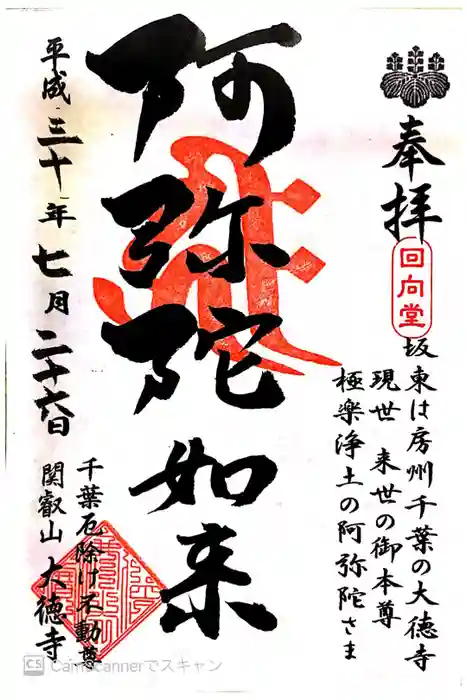 奉拝
回向堂
坂東は房州千葉の大徳寺
現世 来世の御本尊
極楽浄土の阿弥陀さま
阿弥陀如来
平成三十年七月二十六日
千葉厄除け不動尊
関叡山 大徳寺
CS CamScannerでスキャン